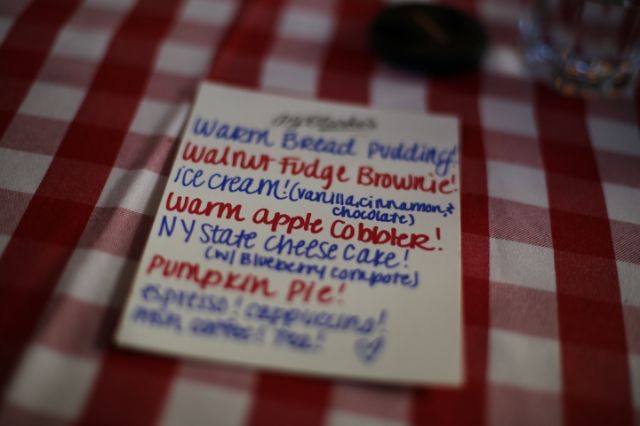 Warm Bread Pudding!
Walnut Fudge Brownie!
Ice cream! (vanilla, cinnamon, &
chocolate)
Warm apple Cobbler!
NY State Cheese Cake!
(w/ Blueberry compote)
Pumpkin Pie!
espresso! cappuccino!
coffee! Tea!